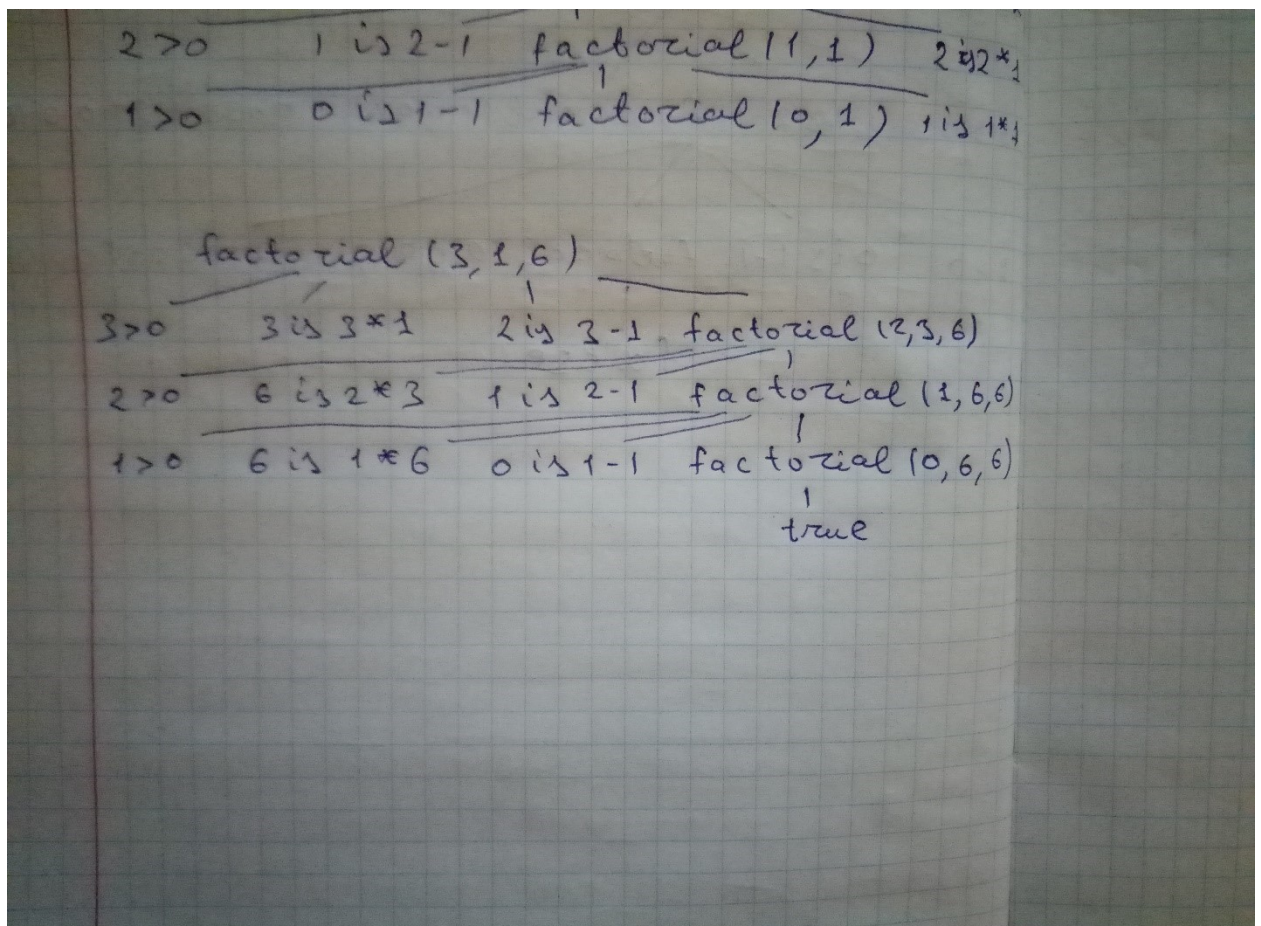 2>0 1 is 2-1 factorial (1,1) 2 is 2*1
1>0 0 is 1-1 factorial (0,1) 1 is 1*1
factorial (3,1,6)
3>0 3 is 3*1 2 is 3-1 factorial (2,3,6)
2>0 6 is 2*3 1 is 2-1 factorial (1,6,6)
1>0 6 is 1*6 0 is 1-1 factorial (0,6,6)
true